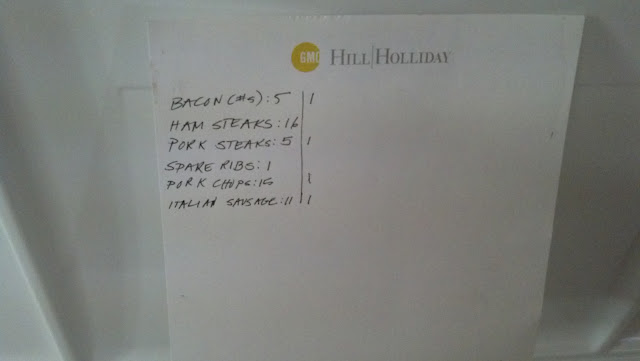 GMO HILL|HOLLIDAY
BACON (#s): 5 | 1
HAM STEAKS: 16
PORK STEAKS: 5 | 1
SPARE RIBS: 1
PORK CHOPS: 15 | 1
ITALIAN SAUSAGE: 11 | 1